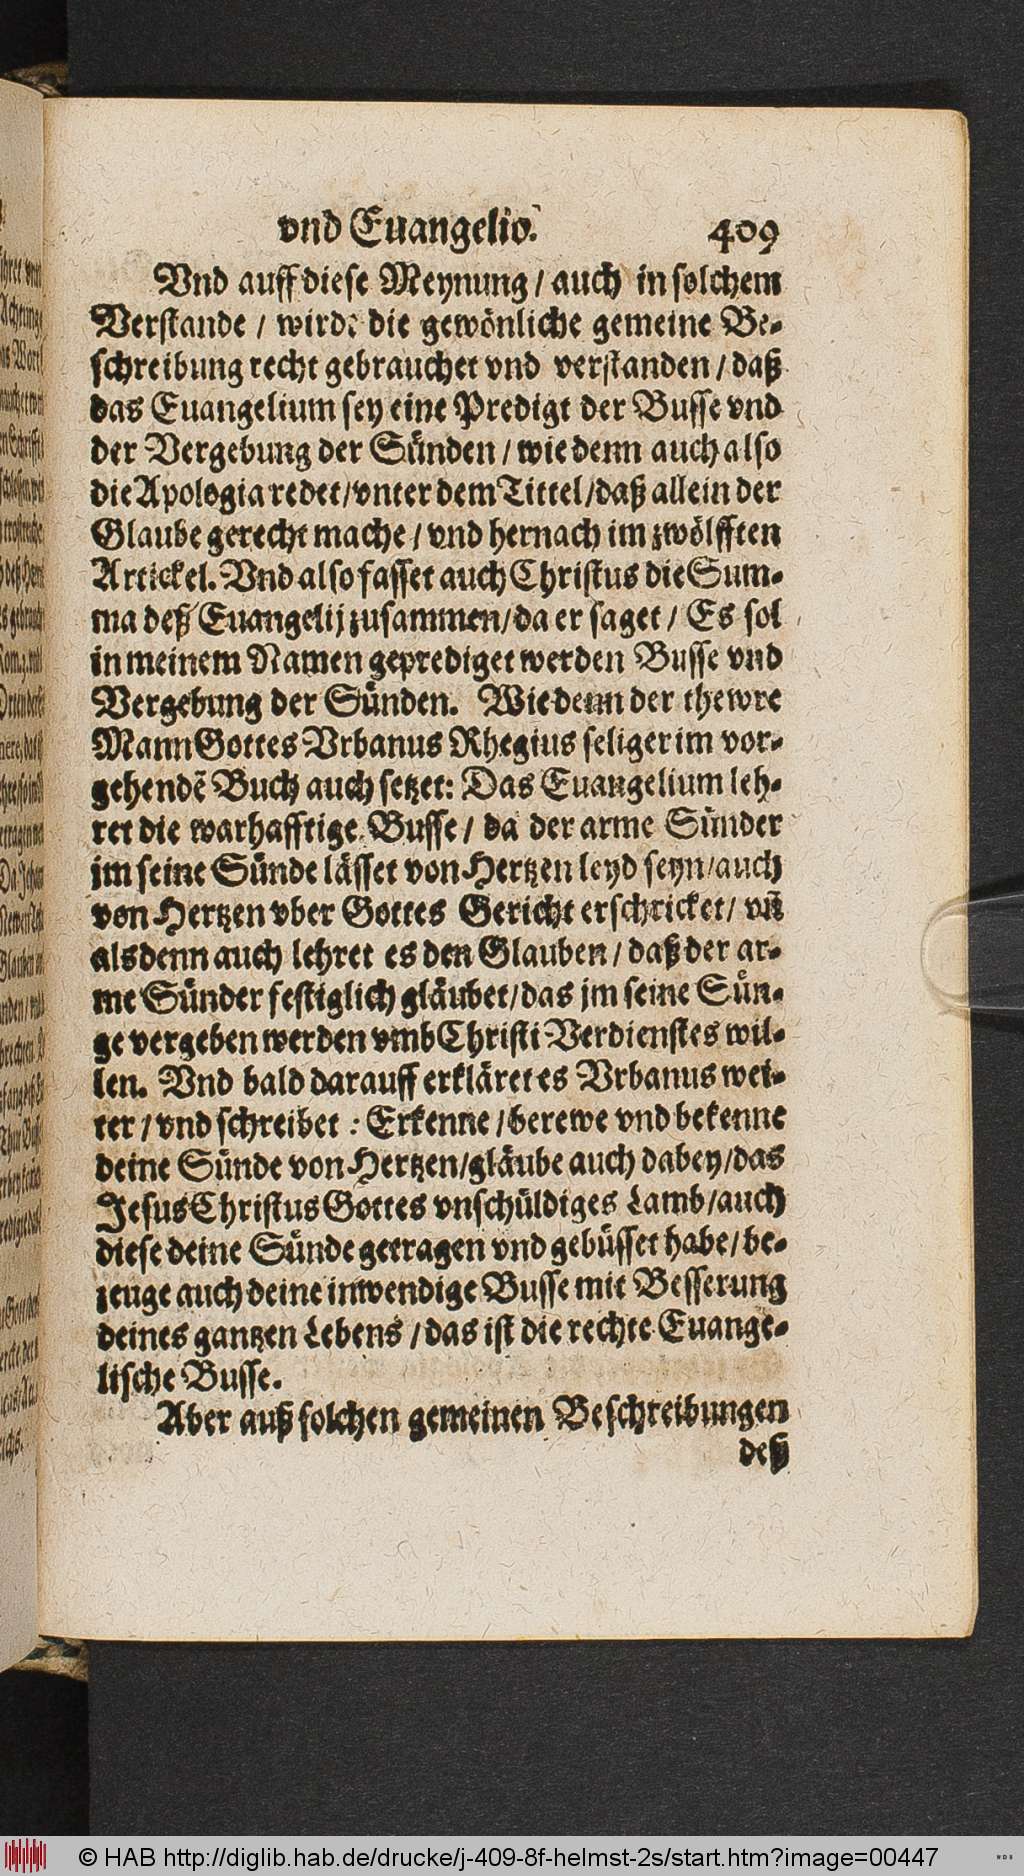 vnd Euangelio. 409
Vnd auff diese Meynung / auch in solchem
Verstande / wird die gewönliche gemeine Be-
schreibung recht gebrauchet vnd verstanden / daß
das Euangelium sey eine Predigt der Busse vnd
der Vergebung der Sünden / wie denn auch also
die Apologia redet / vnter dem Tittel / daß allein der
Glaube gerecht mache / vnd hernach im zwölfften
Artickel. Vnd also fasset auch Christus die Sum-
ma deß Euangelij zusammen / da er saget / Es sol
in meinem Namen geprediget werden Busse vnd
Vergebung der Sünden. Wie denn der thewre
Mann Gottes Vrbanus Rhegius seliger im vor-
gehendē Buch auch setzet: Das Euangelium leh-
ret die warhafftige Busse / da der arme Sünder
jm seine Sünde lässet von Hertzen leyd seyn / auch
von Hertzen vber Gottes Gericht erschricket / vñ
alsdenn auch lehret es den Glauben / daß der ar-
me Sünder festiglich gläubet / das jm seine Sün-
ge vergeben werden vmb Christi Verdienstes wil-
len. Vnd bald darauff erkläret es Vrbanus wei-
ter / vnd schreibet : Erkenne / berewe vnd bekenne
deine Sünde von Hertzen / gläube auch dabey / das
Jesus Christus Gottes vnschüldiges Lamb / auch
diese deine Sünde getragen vnd gebüsset habe / be-
zeuge auch deine inwendige Busse mit Besserung
deines gantzen Lebens / das ist die rechte Euange-
lische Busse.
Aber auß solchen gemeinen Beschreibungen
deß
© HAB http://diglib.hab.de/drucke/j-409-8f-helmst-2s/start.htm?image=00447